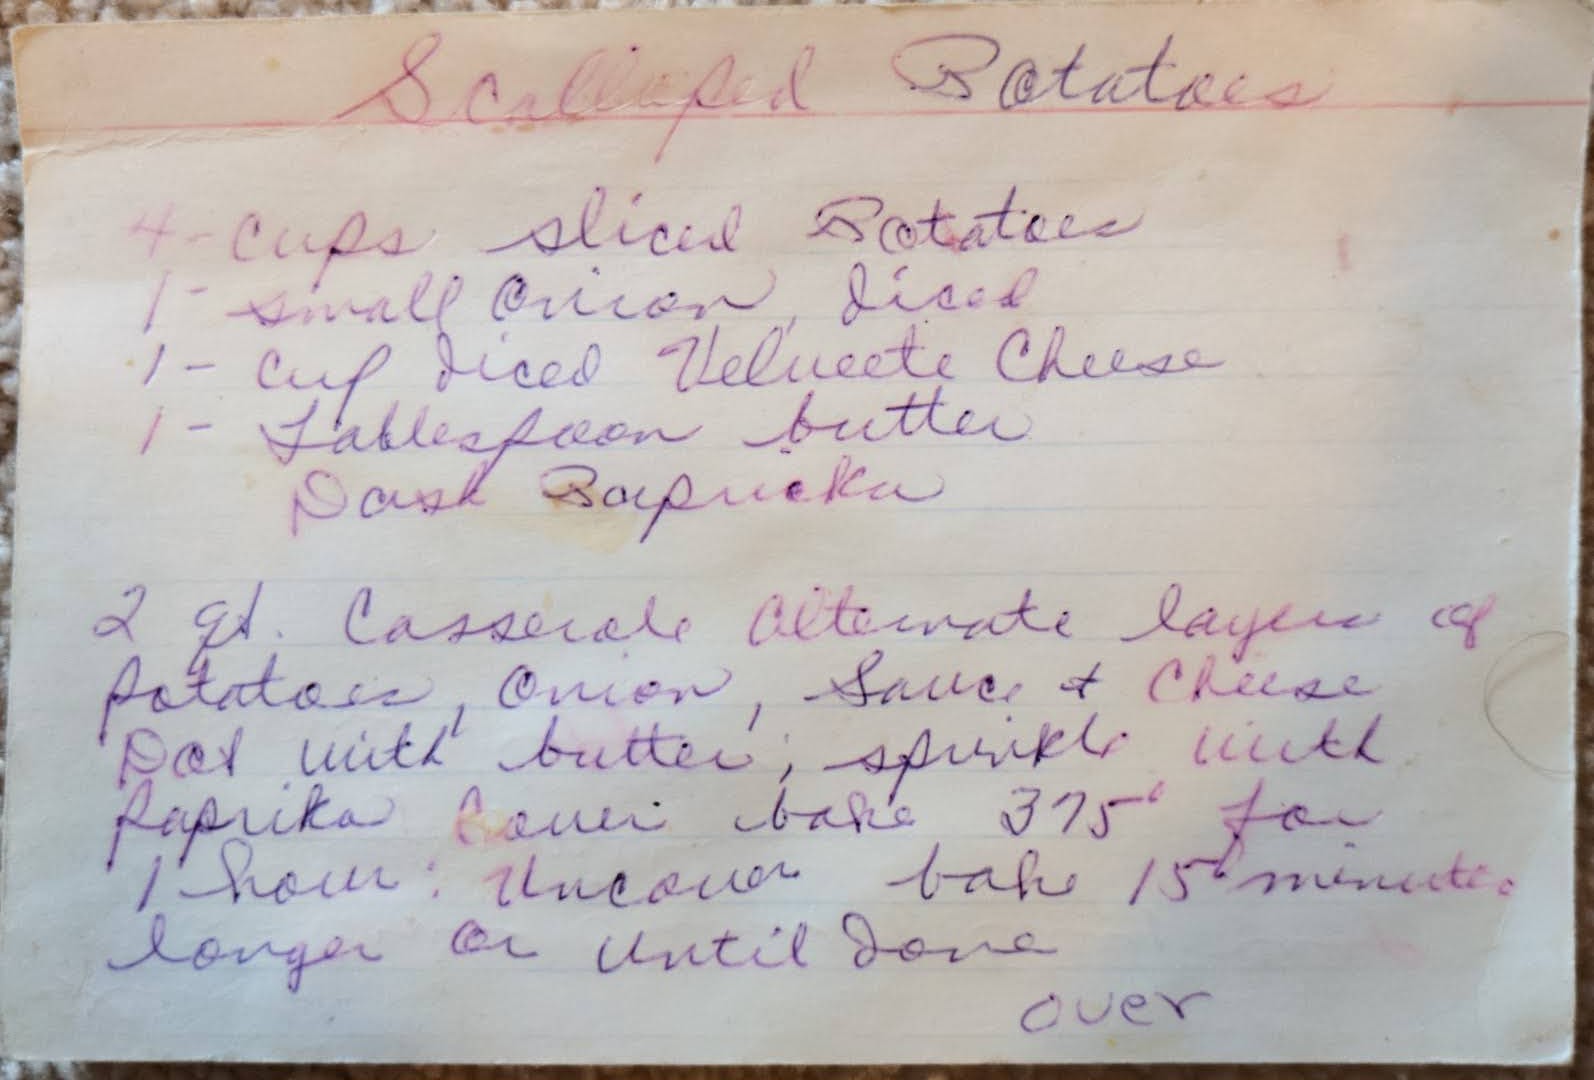 Scalloped Potatoes
4 - cups sliced Potatoes
1 - small Onion, diced
1 - cup diced Velveete Cheese
1 - Tablespoon butter
Dash Papricka
2 qt. Casserole Alternate layers of
potatoes, Onion, Sauce & Cheese
Dot with butter; sprinkle with
paprika Cover bake 375° for
1 hour: Uncover bake 15 minutes
longer or until done
over